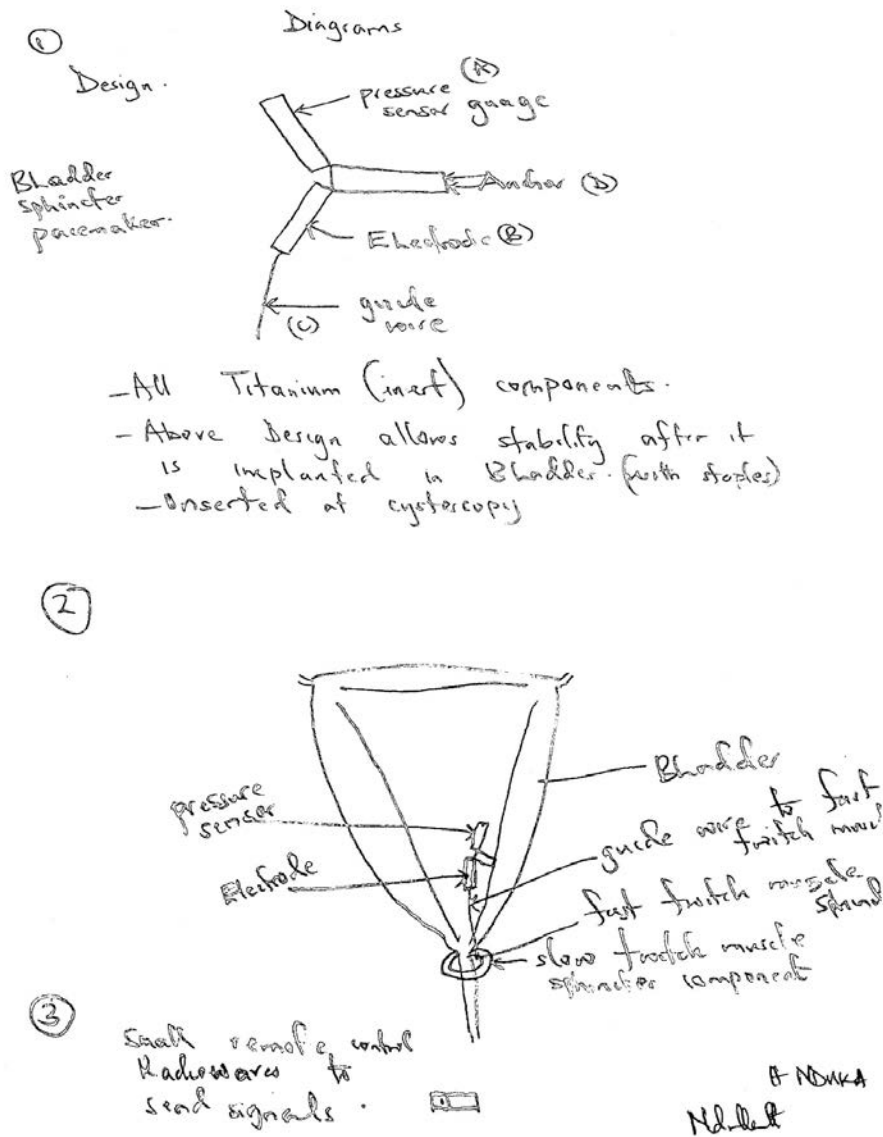 Diagrams
①
Design.
(A)
pressure
sensor guage
Bladder
sphincter
pacemaker.
Anchor (D)
Electrode (B)
guide
wire
(C)
-All Titanium (inert) components.
-Above Design allows stability after it
is implanted in Bladder. (with staples)
-Inserted at cystoscopy
②
Bladder
pressure
sensor
guide wire to fast
twitch
Electrode
fast twitch muscle
slow twitch muscle
sphincter component
③
Small remote control
Radiowaves to
send signals.
NDUKA